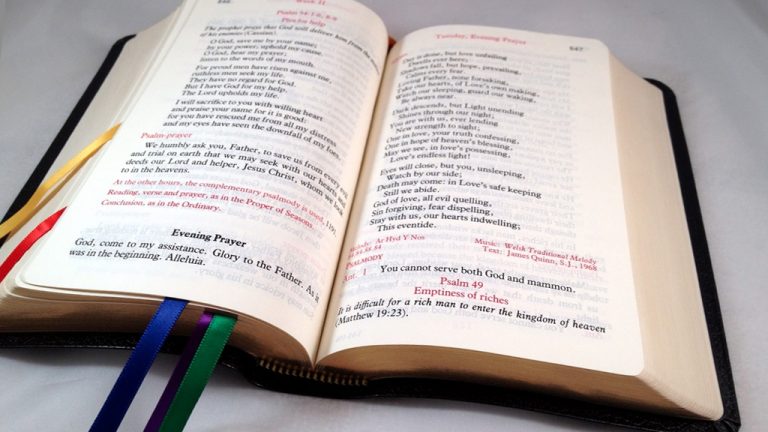 Week II
Psalm 54:1-6, 8-9
Plea for help
The prophet prays that God will deliver him from the
of his enemies (Cassian).
O God, save me by your name;
by your power, uphold my cause.
O God, hear my prayer;
listen to the words of my mouth.
For proud men have risen against me,
ruthless men seek my life.
They have no regard for God.
But I have God for my help.
The Lord upholds my life.
I will sacrifice to you with willing heart
and praise your name for it is good:
for you have rescued me from all my distress
and my eyes have seen the downfall of my foes.
Psalm-prayer
We humbly ask you, Father, to save us from every
and trial on earth that we may seek with our hearts and
deeds our Lord and helper, Jesus Christ, whom we look
to in the heavens.
At the other hours, the complementary psalmody is used,
Reading, verse and prayer, as in the Proper of Seasons.
Conclusion, as in the Ordinary.
Evening Prayer
God, come to my assistance. Glory to the Father. As it
was in the beginning. Alleluia.
Tuesday, Evening Prayer
Day is done, but love unfailing
Dwells ever here;
Shadows fall, but hope, prevailing,
Calms every fear.
Loving Father, none forsaking,
Take our hearts, of Love's own making,
Watch our sleeping, guard our waking,
Be always near.
Dark descends, but Light unending
Shines through our night;
You are with us, ever lending
New strength to sight;
One in love, your truth confessing,
One in hope of heaven's blessing,
May we see, in love's possessing,
Love's endless light!
Eyes will close, but you, unsleeping,
Watch by our side;
Death may come: in Love's safe keeping
Still we abide.
God of love, all evil quelling,
Sin forgiving, fear dispelling,
Stay with us, our hearts indwelling,
This eventide.
Melody: Ar Hyd Y Nos
Music: Welsh Traditional Melody
84.84.88.84
Text: James Quinn, S.J., 1968
PSALMODY
Ant. 1 You cannot serve both God and mammon.
Psalm 49
Emptiness of riches
It is difficult for a rich man to enter the kingdom of heaven
(Matthew 19:23).